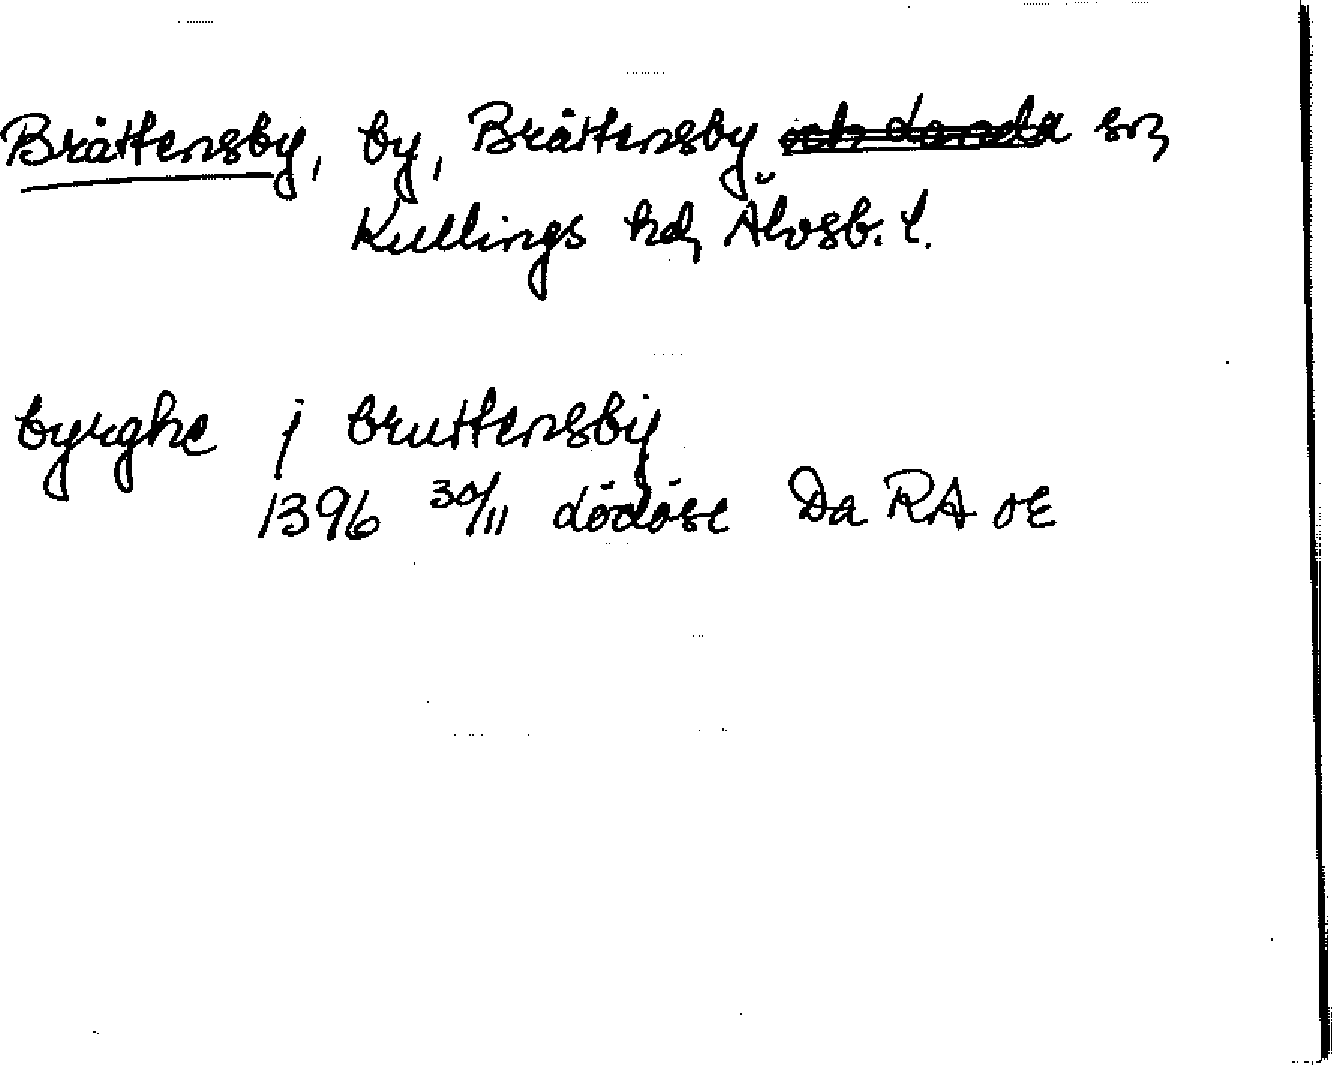 Bråttensby, by, Bråttensby och Landa sn,
Kullings hd, Älvsb. l.
byrghe j bruttensby
1396 30/11 dödöse Da RA or